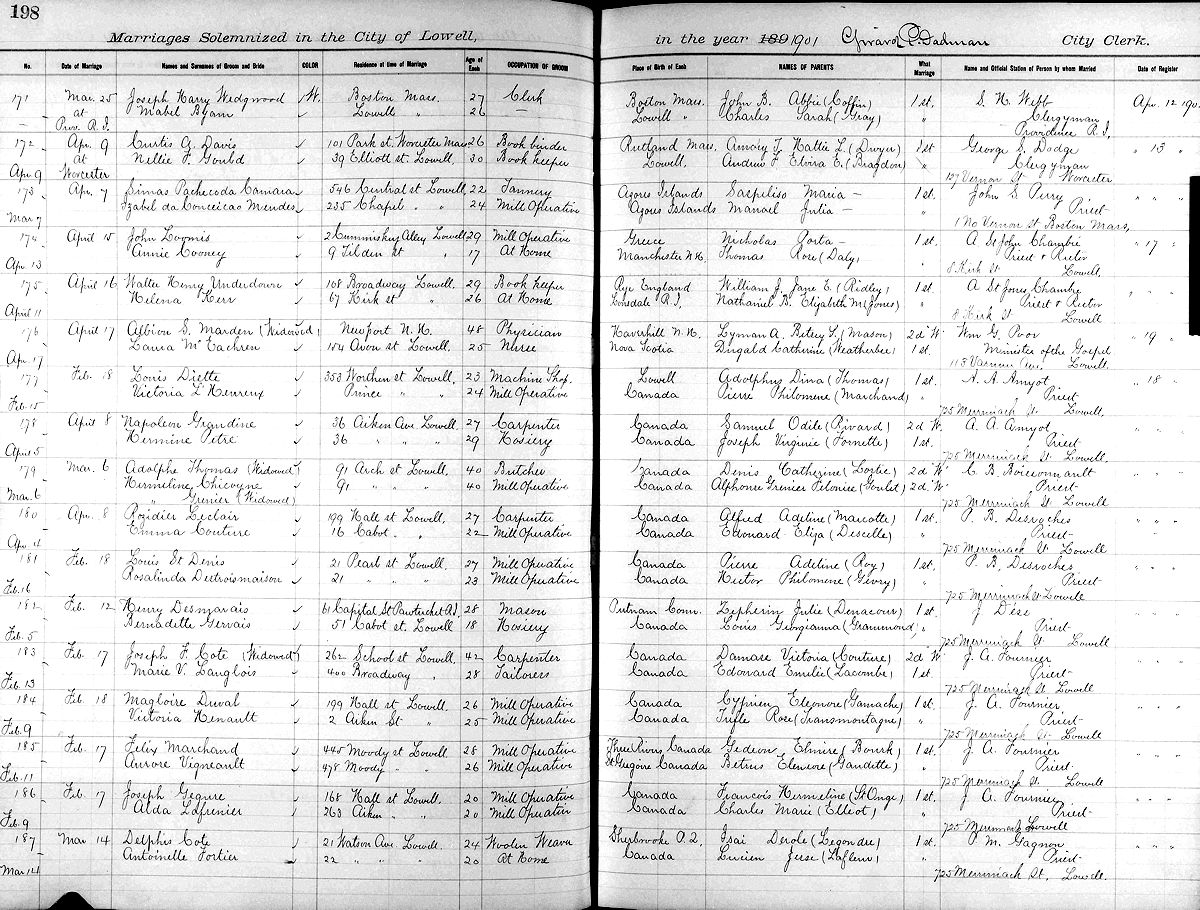 198
Marriages Solemnized in the City of Lowell, in the year 189 1901 City Clerk.
No. Date of Marriage Names and Surnames of Groom and Bride COLOR Residence at time of Marriage Age of Each OCCUPATION OF GROOM Place of Birth of Each NAMES OF PARENTS What Marriage Name and Official Station of Person by whom Married Date of Register
171 Mar. 25 Joseph Harry Wedgwood W. Boston Mass. 27 Clerk Boston Mass. John B. Abbie (Coffin) 1st. S. H. Webb Apr. 12 190
at Mabel Byam Lowell " 26 — Lowell " Charles Sarah (Gray) " Clergyman
Prov. R.I. Providence R.I.
172 Apr. 9 Curtis G. Davis 101 Park st. Worcester Mass 26 Book binder Rutland Mass. Amory T. Hattie L. (Dwyer) 1st George S. Dodge " 13 "
at Nellie F. Gould 39 Elliott st. Lowell 30 Book keeper Lowell. Andrew F. Elvira E. (Bragdon) " Clergyman
Apr. 9 Worcester 107 Vernon St Worcester
173 Apr. 7 Simas Pachecoda Camara 546 Central st Lowell, 22 Tannery Azores Islands Maria — 1st. John S. Perry " " "
Izabel da Conceicao Mendes 235 Chapel " " 24 Mill Operative Azores Islands Manoel Julia — " Priest
Mar 7 1 No Vernon st Boston Mass,
174 April 15 John Loomis 2 Cummiskey Alley Lowell 29 Mill Operative Greece Nicholas Porta — 1st. A St John Chambré " 17 "
Annie Cooney 9 Tilden st " 17 At Home Manchester N.H. Thomas Rose (Daly) " Priest & Rector
Apr. 13 8 Kirk St Lowell
175 April 16 Walter Henry Underdown 108 Broadway Lowell. 29 Book keeper Rye England William J. Jane E. (Ridley) 1st. A St Jones Chambre " " "
Helena Kerr 67 Kirk st " 26 At Home Lonsdale R.I. Nathaniel B. Elizabeth M (Jones) " Priest & Rector
April 11 8 Kirk St Lowell
176 April 17 Albion S. Marden (Widowed) Newport N.H. 48 Physician Haverhill N.H. Lyman A. Betsey L. (Mason) 2d W. Wm G. Poor " 19 "
Laura McEachren 104 Avon st Lowell. 25 Nurse Nova Scotia Dugald Catherine (Weatherbee) 1st. Minister of the Gospel
Apr. 17 113 Varnum Ave. Lowell.
177 Feb. 18 Louis Diette 353 Worthen st Lowell. 23 Machine Shop. Lowell Adolphus Dina (Thomas) 1st. A. A. Amyot " 18 "
Victoria L'Heureux Prince " " 24 Mill Operative Canada Pierre Philomene (Marchand) " Priest
Feb. 15 725 Merrimack St Lowell.
178 April 8 Napoleon Grandine 36 Aiken Ave Lowell. 27 Carpenter Canada Samuel Odile (Rivard) 2d W. A. A. Amyot " " "
Hermine Petre 36 " " " 29 Hosiery Canada Joseph Virginie (Fornette) 1st. Priest
Apr 5 725 Merrimack St. Lowell
179 Mar. 6 Adolphe Thomas (Widowed) 91 Arch st Lowell, 40 Butcher Canada Denis Catherine (Lortie) 2d W C. B. Boissonnault " " "
Hermeline Chicoyne 91 " " " 40 Mill Operative Canada Alphonse Grenier Petonise (Goulet) 2d W Priest
Mar. 6 " Grenier (Widowed) 725 Merrimack St Lowell
180 Apr. 8 Rozidier Leclair 199 Hall st Lowell, 27 Carpenter Canada Alfred Adeline (Marcotte) 1st. P. B. Desroches " " "
Emma Couture 16 Cabot " " 22 Mill Operative Canada Edouard Eliza (Descelle) " Priest
Apr. 4 725 Merrimack St Lowell
181 Feb. 18 Louis St Denis 21 Pearl st Lowell, 27 Mill Operative Canada Pierre Adeline (Roy) 1st. P. B. Desroches " " "
Rosalinda Destroismaison 21 " " " 23 Mill Operative Canada Hector Philomene (Givry) " Priest
Feb. 16 725 Merrimack St Lowell
182 Feb. 12 Henry Desmarais 61 Capital St Pawtucket R.I. 28 Mason Putnam Conn. Zepherin Julie (Denacour) 1st. J Dése " " "
Bernadette Gervais 51 Cabot st. Lowell 18 Hosiery Canada Louis Georgianna (Grammond) " Priest
Feb. 5 725 Merrimack St Lowell
183 Feb. 17 Joseph F. Cote (Widowed) 262 School st Lowell. 42 Carpenter Canada Damase Victoria (Couture) 2d W. J. A. Fournier " " "
Marie V. Langlois 400 Broadway " 28 Tailoress Canada Edouard Emilie (Lacombe) 1st. Priest
Feb. 13 725 Merrimack St Lowell
184 Feb. 18 Magloire Duval 199 Hall st Lowell. 26 Mill Operative Canada Cyprien Eleonore (Gamache) 1st. J. A. Fournier " " "
Victoria Henault 2 Aiken St " 25 Mill Operative Canada Trifle Rose (Transmontagne) " Priest
Feb. 9 725 Merrimack St Lowell
185 Feb. 17 Felix Marchand 445 Moody st Lowell 28 Mill Operative Three Rivers Canada Gedeon Elmire (Bourk) 1st. J. A. Fournier " " "
Aurore Vigneault 478 Moody " " 26 Mill Operative St Gregoire Canada Betrus Eleneore (Gaudette) " Priest
Feb. 11 725 Merrimack St Lowell
186 Feb. 17 Joseph Gegure 168 Hall st Lowell. 20 Mill Operative Canada Francois Hermeline (St Onge) 1st. J. A. Fournier " " "
Alda Lafrenier 263 Aiken " " 20 Mill Operative Canada Charles Marie (Elliot) " Priest
Feb. 9 725 Merrimack Lowell
187 Mar 14 Delphis Cote 21 Watson Ave Lowell. 24 Woolen Weaver Sherbrooke P.Q. Isai Derole (Legendre) 1st. P. M. Gagnon " " "
Antoinelle Fortier 22 " " " 20 At Home Canada Lucien Jesse (Lafleur) " Priest
Mar. 14 725 Merrimack St. Lowell.